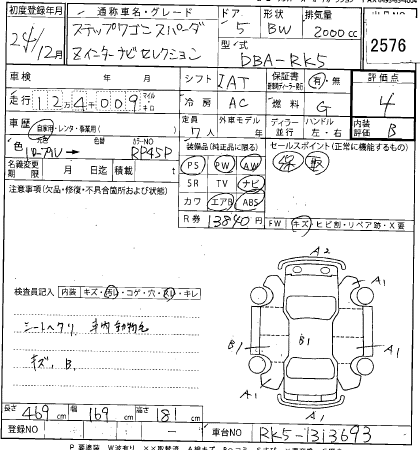 初度登録年月 通称車名・グレード ドア 型 排気量
24年12月 ステップワゴン スパーダ Zインターナビセレクション 5 BW 2000cc
2576
型式 DBA-RK5
車検 年 月 シフト IAT 保証書 有・無 評価点
走行 124009 マイル キロ 冷房 AC 燃料 G 4
車歴 自家用・レンタ・事業用( ) 定員 7人 外車モデル 年 ディーラー 並行 ハンドル 左・右 内装評価 B
色 元色 →色替 カラーNO RP45P 装備品(純正品に限る) セールスポイント(正常に機能するもの)
PS PW AW 保 取
名義変更期限 月 日迄 積載 t SR TV ナビ
注意事項(欠品・修復・不具合箇所および状態) カワ エアB ABS
R券 13840円 FW キズ・ヒビ割・リペア跡・X要
A2
A1 A1
検査員記入 内装 キズ・汚レ・コゲ・穴・スレ・キレ
シートヘタリ 車内動物毛
B1 B1 A1
キズ、B.
A1 A1
長さ 469cm 幅 169cm 高さ 181cm A1
登録NO 車台NO RK5-1313693